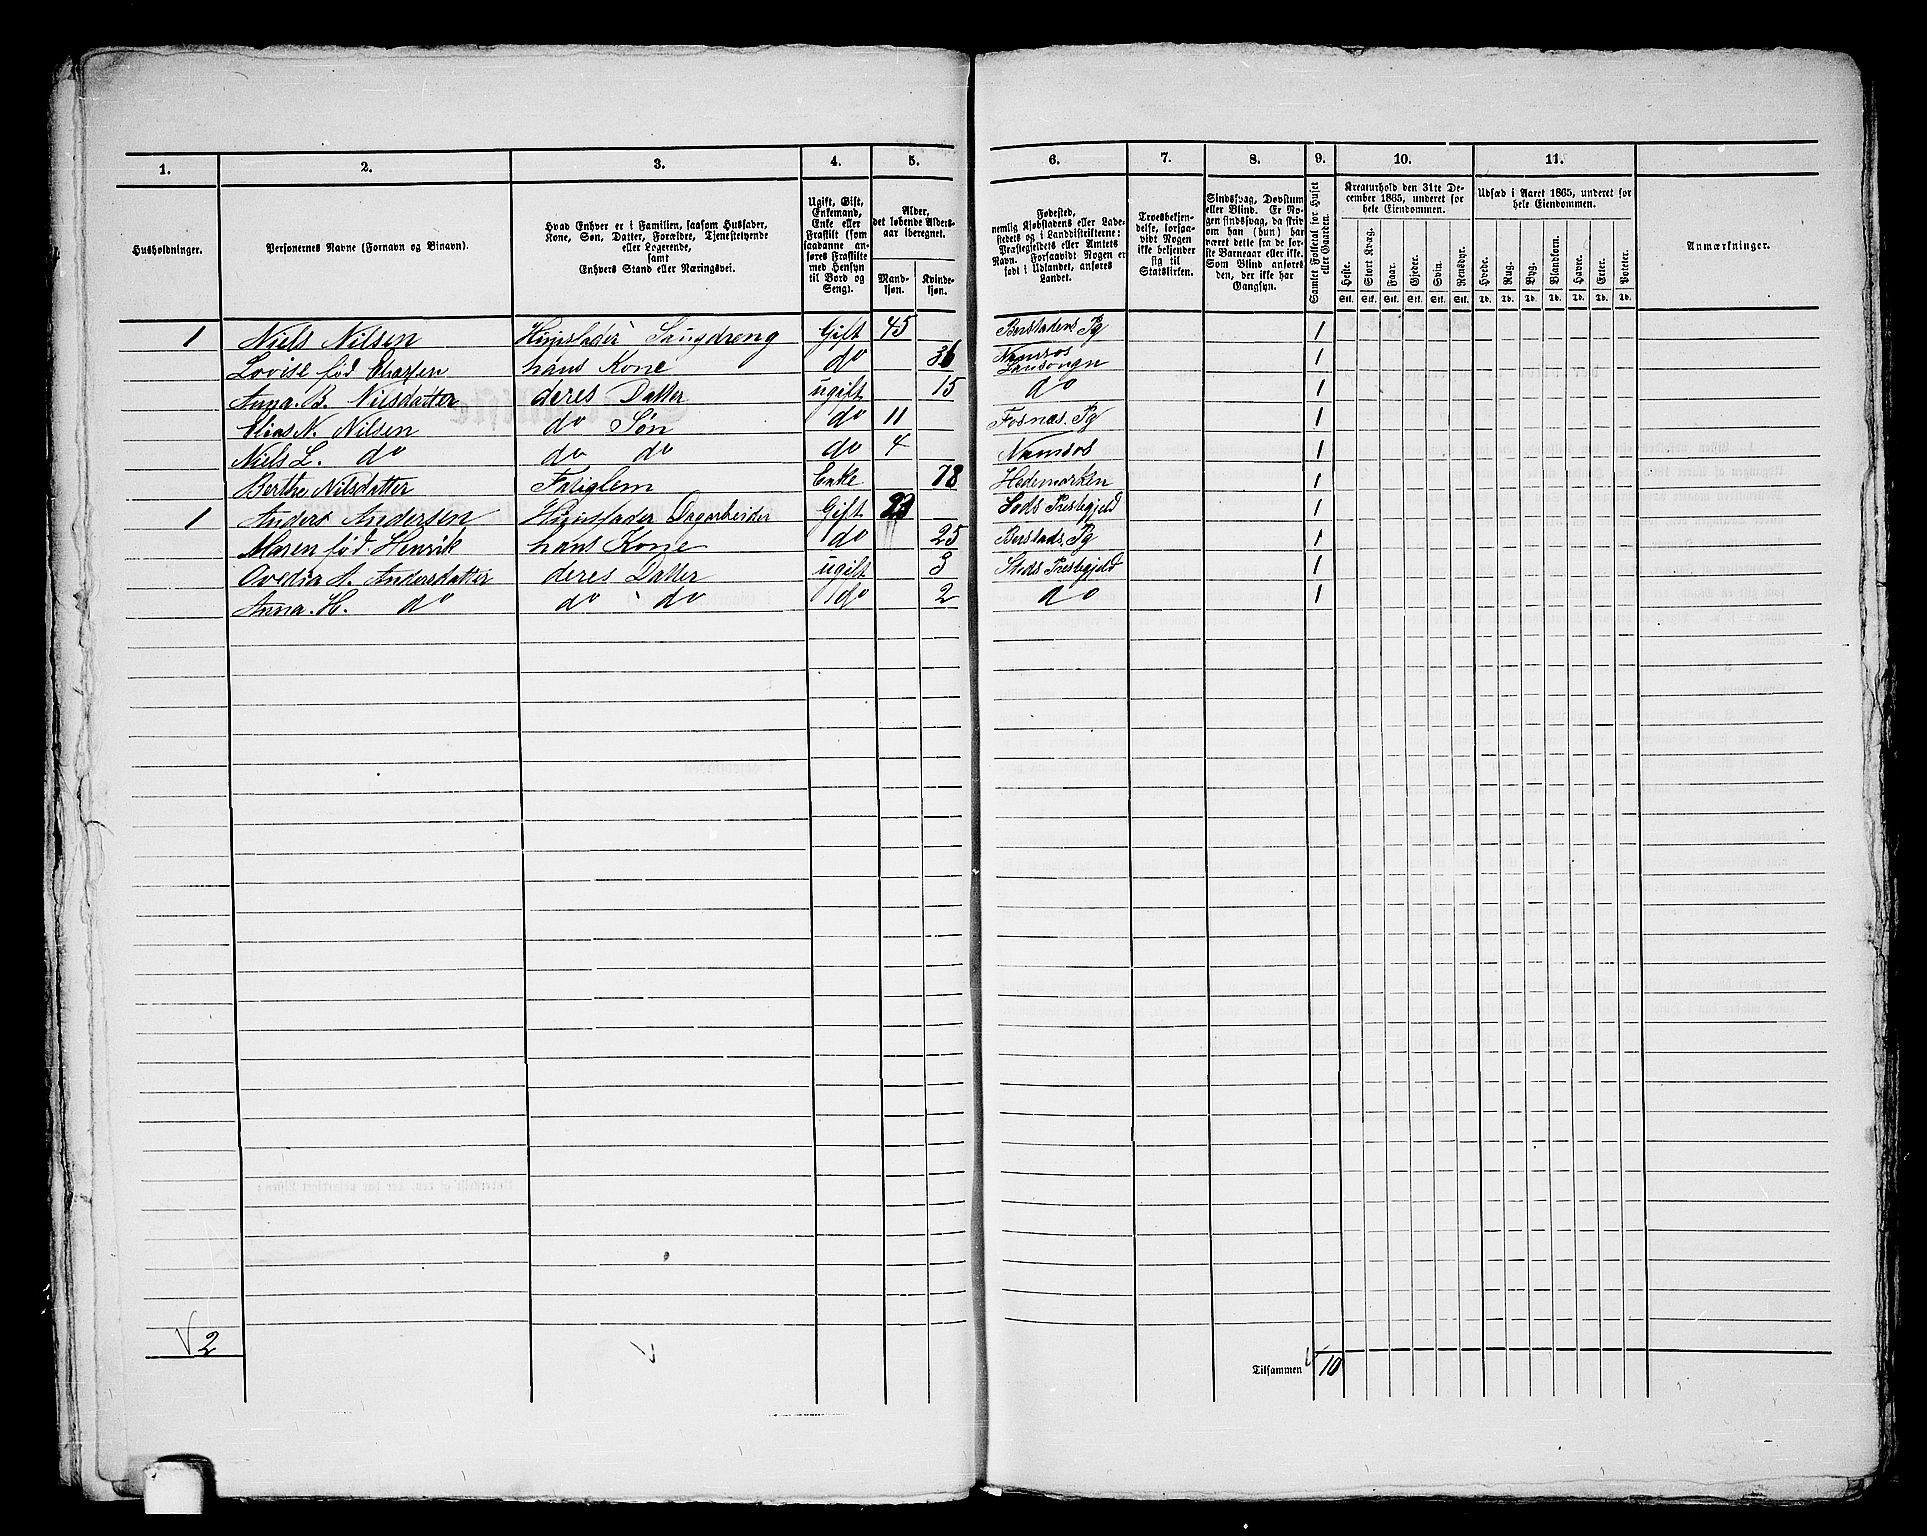 1. 2. 3. 4. 5. 6. 7. 8. 9. 10. 11.
Husholdninger.
Personernes Navne (Fornavn og Binavn).
Hvad Enhver er i Familien, saasom Husfader,
Kone, Søn, Datter, Forældre, Tjenestetyende
eller Logerende,
samt
Enhvers Stand eller Næringsvei.
Ugift, Gift,
Enkemand,
Enke eller
Fraskilt (som
saadanne an-
føres Fraskilte
med Hensyn
til Bord og
Seng).
Alder,
det løbende Alders-
aar iberegnet.
Mand-
kjøn.
Kvinde-
kjøn.
Fødested,
nemlig Kjøbstadens eller Lade-
stedets og i Landdistrikterne:
Præstegjeldets eller Amtets
Navn. Forsaavidt Nogen er
født i Udlandet, anføres
Landet.
Troesbekjen-
delse, forsaa-
vidt Nogen
ikke bekjender
sig til
Statskirken.
Sindssvag, Døvstum
eller Blind. Er No-
gen sindssvag, da skriv
om han (hun) har
været dette fra de før-
ste Barneaar eller ikke.
Som Blind anføres
den, der ikke har
Gangsyn.
Samlet Folketal for Huset
eller Gaarden.
Kreaturhold den 31te De-
cember 1865, underet for
hele Eiendommen.
Heste. Stort Kvæg. Faar. Gjeder. Svin. Rensdyr.
Stk. Stk. Stk. Stk. Stk. Stk.
Udsæd i Aaret 1865, underet for
hele Eiendommen.
Hvede. Rug. Byg. Blandkorn. Havre. Erter. Poteter.
Td. Td. Td. Td. Td. Td. Td.
Anmærkninger.
1 Niels Nilsen Huusfader Gift 45 Pg 1
Lovise fød hans Kone do 36 Namsos Landsogn 1
Anna. B. Nilsdatter deres Datter ugift 15 do 1
Elias N. Nilsen do Søn do 11 Fosnas. Pg 1
Niels L. do do do do 4 Namsos 1
Berthe Nilsdatter Fatiglem Enke 78 Hedemarken 1
1 Anders Andersen Huusfader Dagarbeider Gift Præstegjeld 1
Maren fød. Henrik hans Kone do 25 Pg 1
Ovedia A. Andersdatter deres Datter ugift 3 Stods Præstegjeld 1
Anna. H. do do do do 2 do 1
2
Tilsammen 10